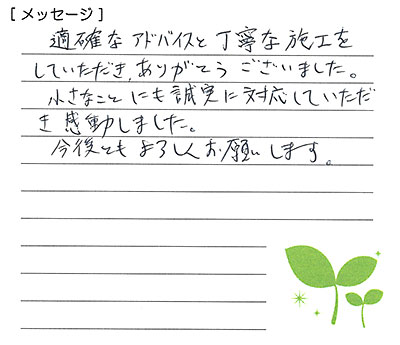 [メッセージ]
適確なアドバイスと丁寧な施工を
していただき、ありがとうございました。
小さなことにも誠実に対応していただ
き感動しました。
今後ともよろしくお願いします。